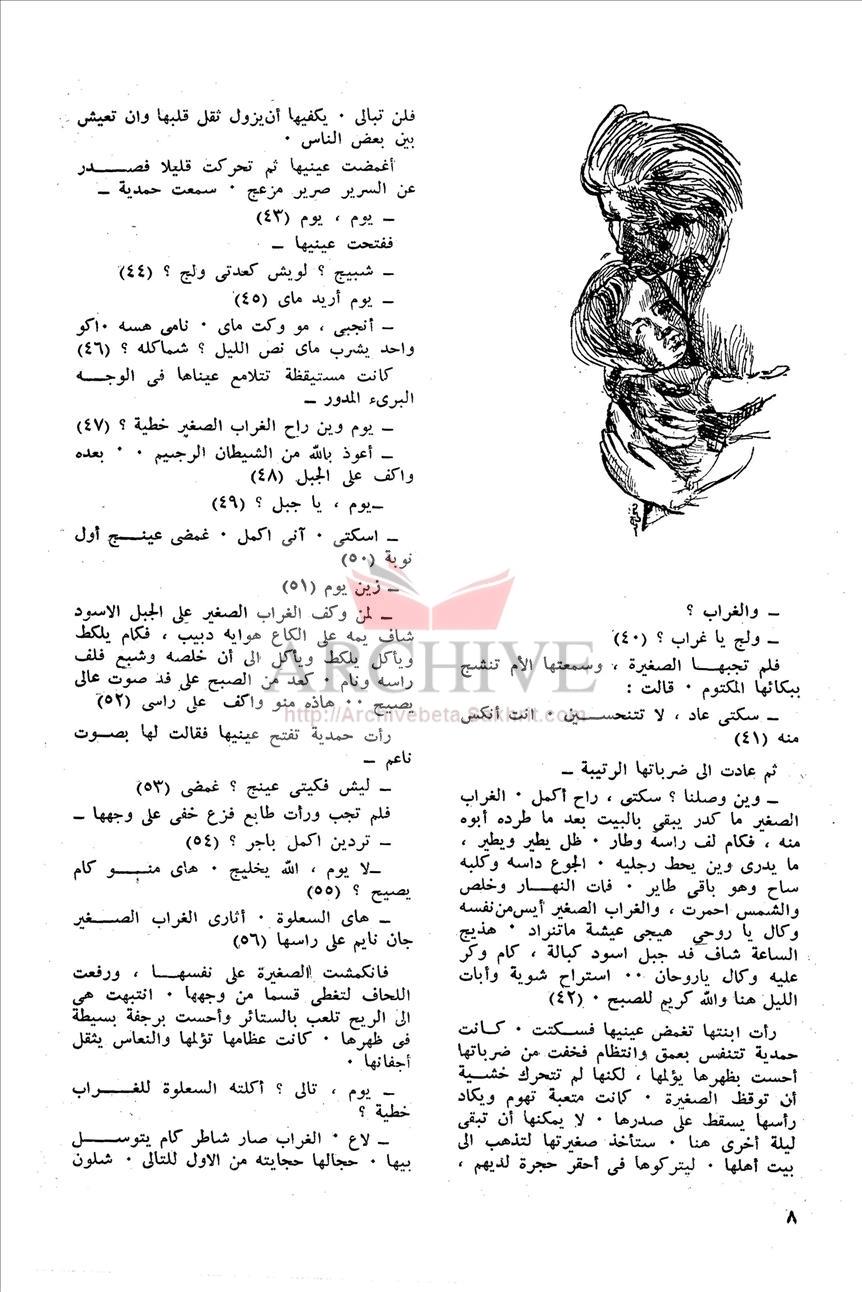 ــ والغراب ؟
ــ ولج يا غراب ؟ (٤٠)
فلم تجبهـــا الصغيرة ، وسمعتها الأم تنشج
ببكائها المكتوم ٠ قالت :
ــ سكتى عاد ، لا تتنحســـين ٠ انت أنكس
منه (٤١)
ثم عادت الى ضرباتها الرتيبة ــ
ــ وين وصلنا ؟ سكتى ، راح أكمل ٠ الغراب
الصغير ما كدر يبقى بالبيت بعد ما طرده أبوه
منه ، فكام لف راسه وطار ٠ ظل يطير ويطير ،
ما يدرى وين يحط رجليه ٠ الجوع داسه وكلبه
ساح وهو باقى طاير ٠ فات النهـــار وخلص
والشمس احمرت ، والغراب الصغير أيس من نفسه
وكال يا روحي هيجى عيشة ماتنراد ٠ هذيج
الساعة شاف فد جبل اسود كبالة ، كام وكر
عليه وكال ياروحان ٠٠ استراح شوية وأبات
الليل هنا والله كريم للصبح ٠ (٤٢)
رأت ابنتها تغمض عينيها فسكتت ٠ كـــانت
حمدية تتنفس بعمق وانتظام فخفت من ضرباتها
أحست بظهرها يؤلمها ، لكنها لم تتحرك خشـــية
أن توقظ الصغيرة ٠ كانت متعبة تهوم ويكاد
رأسها يسقط على صدرها ٠ لا يمكنها أن تبقى
ليلة أخرى هنا ٠ ستأخذ صغيرتها لتذهب الى
بيت أهلها ٠ ليتركوها فى أحقر حجرة لديهم ،
فلن تبالى ٠ يكفيها أن يزول ثقل قلبها وان تعيش
بين بعض الناس ٠
أغمضت عينيها ثم تحركت قليلا فصـــدر
عن السرير صرير مزعج ٠ سمعت حمدية ــ
ــ يوم ، يوم (٤٣)
ففتحت عينيها ــ
ــ شبيج ؟ لويش كعدتى ولج ؟ (٤٤)
ــ يوم أريد ماى (٤٥)
ــ أنجبى ، مو وكت ماى ٠ نامى هسه ٠ اكو
واحد يشرب ماى نص الليل ؟ شماكله ؟ (٤٦)
كانت مستيقظة تتلامع عيناها فى الوجـــه
البرىء المدور ــ
ــ يوم وين راح الغراب الصغير خطية ؟ (٤٧)
ــ أعوذ بالله من الشيطان الرجيم ٠ ٠ بعده
واكف على الجبل (٤٨)
ــ يوم ، يا جبل ؟ (٤٩)
ــ اسكتى ٠ آنى اكمل ٠ غمضى عينـــج أول
نوبة (٥٠)
ــ زين يوم (٥١)
ــ لمن وكف الغراب الصغير على الجبل الاسود
شاف يمه على الكاع هوايه دبيب ، فكام يلكط
ويأكل يلكط ويأكل الى أن خلصه وشبع فلف
راسه ونام ٠ كعد من الصبح على فد صوت عالى
يصيح ٠٠ هاذه منو واكف على راسى (٥٢)
رأت حمدية تفتح عينيها فقالت لها بصـوت
ناعم ــ
ــ ليش فكيتى عينج ؟ غمضى (٥٣)
فلم تجب ورأت طابع فزع خفى على وجهها ــ
ــ تردين اكمل باجر ؟ (٥٤)
ــ لا يوم ، الله يخليج ٠ هاى منـــو كام
يصيح ؟ (٥٥)
ــ هاى السعلوة ٠ أثارى الغراب الصـــغير
جان نايم على راسها (٥٦)
فانكمشت الصغيرة على نفسهـــا ، ورفعت
اللحاف لتغطى قسما من وجهها ٠ انتبهت هى
الى الريح تلعب بالستائر وأحست برجفة بسيطة
فى ظهرها ٠ كانت عظامها تؤلمها والنعاس يثقل
أجفانها ٠
ــ يوم ، تالى ؟ أكلته السعلوة للغـــراب
خطية ؟
ــ لاع ٠ الغراب صار شاطر كام يتوســـل
بيها ٠ حجالها حجايته من الاول للتالى ٠ شلون
٨
ARCHIVE
http://Archivebeta.Sakhrit.com